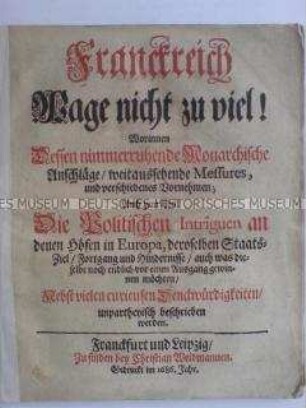 Franckreich
Wage nicht zu viel!
Worinnen
Dessen nimmerruhende Monarchische
Anschläge / weitaussehende Messures,
und verschiedenes Vornehmen,
Die Politischen Intriguen an
denen Höfen in Europa, deroselben Staats-
Ziel / Fortgang und Hindernisse / auch was die-
selbe noch endlich vor einen Ausgang gewin-
nen möchten /
Nebst vielen curieusen Denckwürdigkeiten /
unpartheyisch beschrieben
worden.
Franckfurt und Leipzig /
Zu finden bey Christian Weidmannen.
Gedruckt im 1686. Jahr.